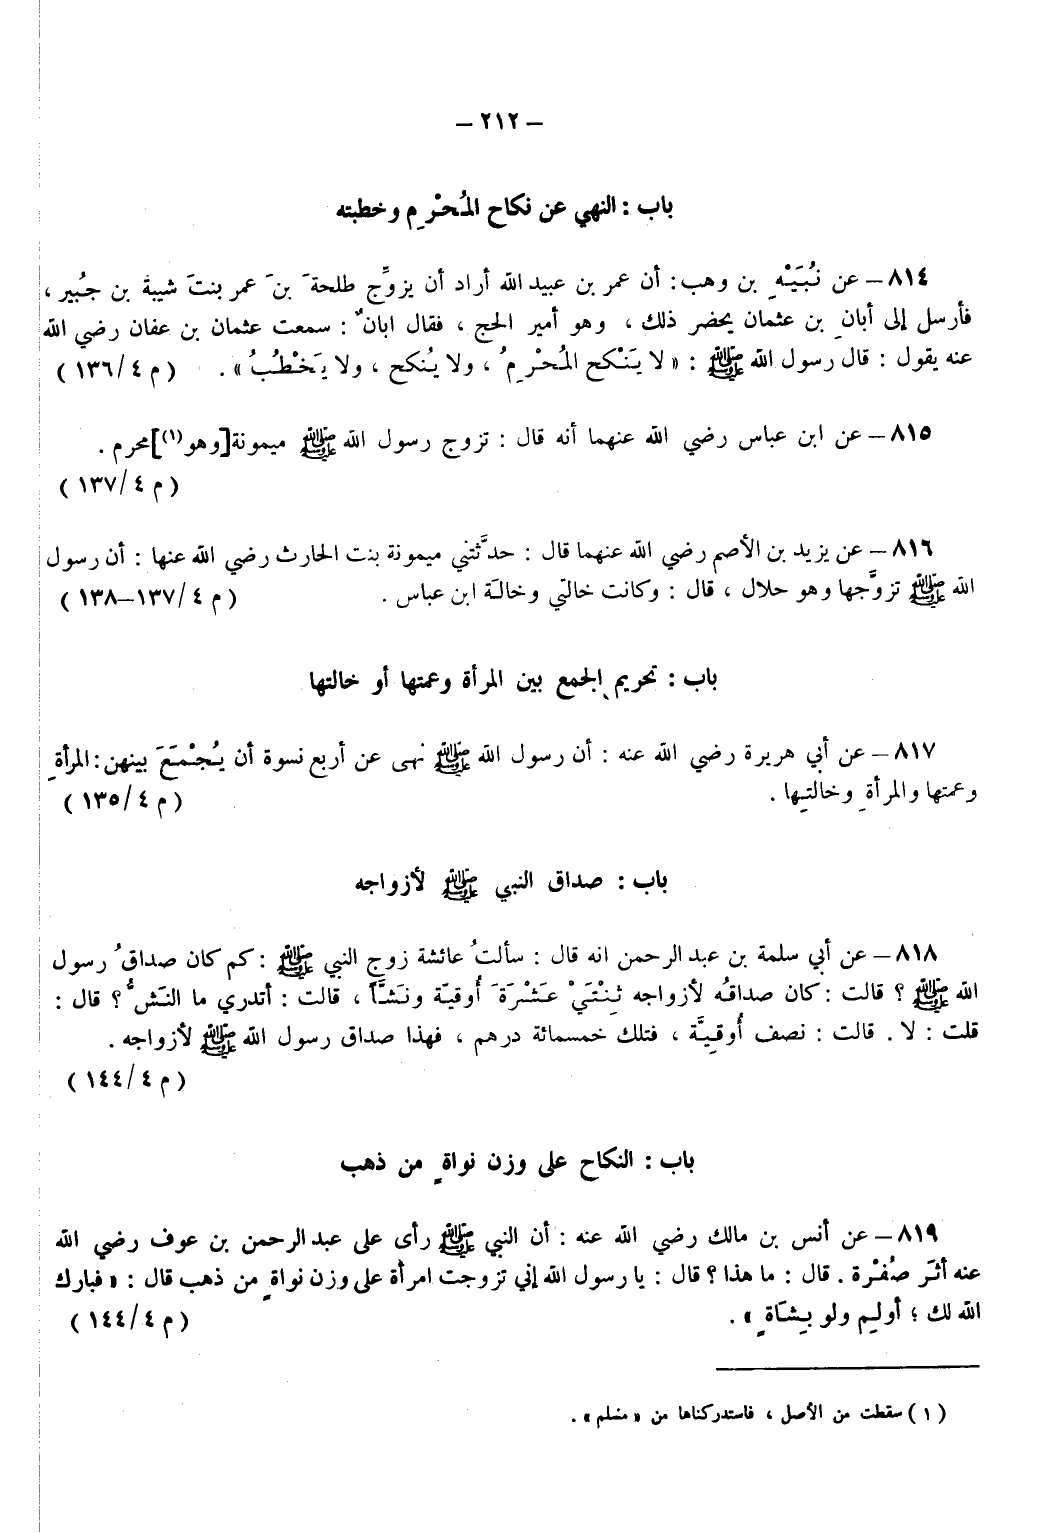 – ٢١٢ –
باب : النهي عن نكاح المُحْرِم وخطبته
٨١٤ – عن نُبَيْهِ بن وهب : أن عمر بن عبيد الله أراد أن يزوِّج طلحةَ بنَ عمر بنتَ شيبة بن جُبير ،
فأرسل إلى أبانِ بن عثمان يحضر ذلك ، وهو أمير الحج ، فقال ابانٌ : سمعت عثمان بن عفان رضي الله
عنه يقول : قال رسول الله ﷺ : « لا يَنْكح المُحْرِمُ ، ولا يُنكح ، ولا يَخْطُبُ » . ( م ٤/١٣٦ )
٨١٥ – عن ابن عباس رضي الله عنهما أنه قال : تزوج رسول الله ﷺ ميمونة [وهو (١)] محرم .
( م ٤/١٣٧ )
٨١٦ – عن يزيد بن الأصم رضي الله عنهما قال : حدَّثتني ميمونة بنت الحارث رضي الله عنها : أن رسول
الله ﷺ تزوَّجها وهو حلال ، قال : وكانت خالتي وخالة ابن عباس . ( م ٤/١٣٧–١٣٨ )
باب : تحريم الجمع بين المرأة وعمتها أو خالتها
٨١٧ – عن أبي هريرة رضي الله عنه : أن رسول الله ﷺ نهى عن أربع نسوة أن يُجْمَعَ بينهن : المرأةِ
وعمتها والمرأةِ وخالتِها . ( م ٤/١٣٥ )
باب : صداق النبي ﷺ لأزواجه
٨١٨ – عن أبي سلمة بن عبد الرحمن انه قال : سألتُ عائشة زوج النبي ﷺ : كم كان صداقُ رسول
الله ﷺ ؟ قالت : كان صداقُه لأزواجه ثِنْتَيْ عَشْرَةَ أُوقيّة ونَشَّاً ، قالت : أتدري ما النَشُّ ؟ قال :
قلت : لا . قالت : نصف أُوقِيَّة ، فتلك خمسمائة درهم ، فهذا صداق رسول الله ﷺ لأزواجه .
( م ٤/١٤٤ )
باب : النكاح على وزن نواةٍ من ذهب
٨١٩ – عن أنس بن مالك رضي الله عنه : أن النبي ﷺ رأى على عبد الرحمن بن عوف رضي الله
عنه أثَر صُفْرة . قال : ما هذا ؟ قال : يا رسول الله إني تزوجت امرأة على وزن نواةٍ من ذهب قال : « فبارك
الله لك ؛ أولِم ولو بِشاةٍ » . ( م ٤/١٤٤ )
( ١ ) سقطت من الأصل ، فاستدركناها من « مسلم » .